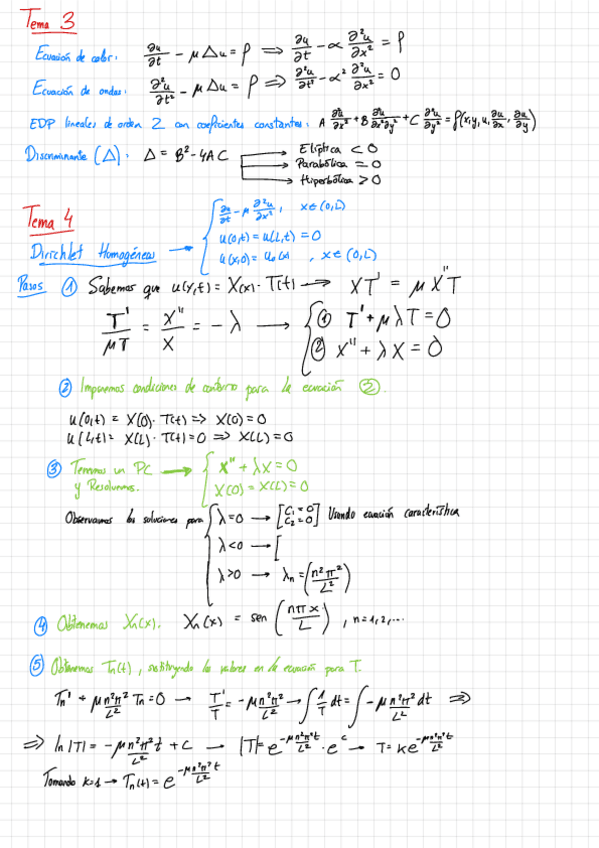 Tema 3
Ecuación de calor: ∂u/∂t - μ Δu = ρ ⇒ ∂u/∂t - α ∂²u/∂x² = ρ
Ecuación de ondas: ∂²u/∂t² - μ Δu = ρ ⇒ ∂²u/∂t² - α² ∂²u/∂x² = 0
EDP lineales de orden 2 con coeficientes constantes: A ∂²u/∂x² + B ∂²u/∂x∂y + C ∂²u/∂y² = ρ(x,y,u,∂u/∂x,∂u/∂y)
Discriminante (Δ): Δ = B² - 4AC
Elíptica < 0
Parabólica = 0
Hiperbólica > 0
Tema 4
∂u/∂t - μ ∂²u/∂x², x∈(0,L)
Dirichlet Homogéneas → u(0,t) = u(L,t) = 0
u(x,0) = u₀(x), x∈(0,L)
Pasos ① Sabemos que u(x,t) = X(x)·T(t) → XT' = μX''T
T'/μT = X''/X = -λ → { ① T' + μλT = 0
② X'' + λX = 0
② Imponemos condiciones de contorno para la ecuación ②.
u(0,t) = X(0)·T(t) ⇒ X(0) = 0
u(L,t) = X(L)·T(t) = 0 ⇒ X(L) = 0
③ Tenemos un PC → { X'' + λX = 0
y Resolvemos. X(0) = X(L) = 0
Observamos las soluciones para { λ=0 → [C₁=0 C₂=0] Usando ecuación característica
λ<0 → [
λ>0 → λn = (n²π²/L²)
④ Obtenemos Xn(x). Xn(x) = sen (nπx/L), n=1,2,...
⑤ Obtenemos Tn(t), sustituyendo los valores en la ecuación para T.
Tn' + μ n²π²/L² Tn = 0 → T'/T = -μ n²π²/L² → ∫ 1/T dt = ∫ -μ n²π²/L² dt ⇒
⇒ ln|T| = -μ n²π²/L² t + C → |T| = e^(-μ n²π²t/L²) · e^c → T = Ke^(-μ n²π²t/L²)
Tomando K=1 → Tn(t) = e^(-μ n²π²t/L²)